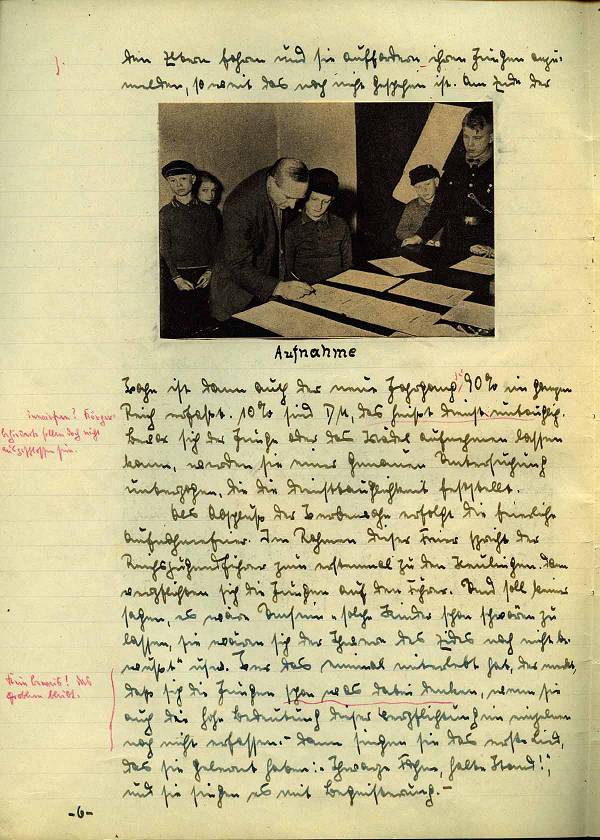 den Eltern fahren und sie auffordern ihren Jungen anzu-
melden, so weit das noch nicht geschehen ist. Am Ende der
Aufnahme
ist dann auch der neue Jahrgang zu 90% im ganzen
Reich erfasst. 10% sind DU, das heißt dienstuntauglich.
Bevor sich der Junge oder das Mädel aufnehmen lassen
kann, werden sie einer genauen Untersuchung
unterzogen, die die Diensttauglichkeit feststellt.
Als Abschluß der Werbewoche erfolgt die feierliche
Aufnahmefeier. Im Rahmen dieser Feier spricht der
Reichsjugendführer zum erstenmal zu den Neulingen. Dann
verpflichten sich die Jungen auf den Führer. Und soll keiner
sagen, es wäre Unsinn „solche Kinder schon schwören zu
lassen, sie wären sich der Schwere des Eides noch nicht be-
wußt“ usw. Wer das einmal miterlebt hat, der merkt,
daß sich die Jungen schon was dabei denken, wenn sie
auch die hohe Bedeutung dieser Verpflichtung im einzelnen
noch nicht erfassen.– Dann singen sie das erste Lied,
das sie gelernt haben: „Schwarze Fahne, halte Stand!“,
und sie singen es mit Begeisterung.–
inwiefern? Körper-
behinderte sollen doch nicht
ausgeschlossen sein.
Kein Beweis! Das
Problem bleibt.
-6-